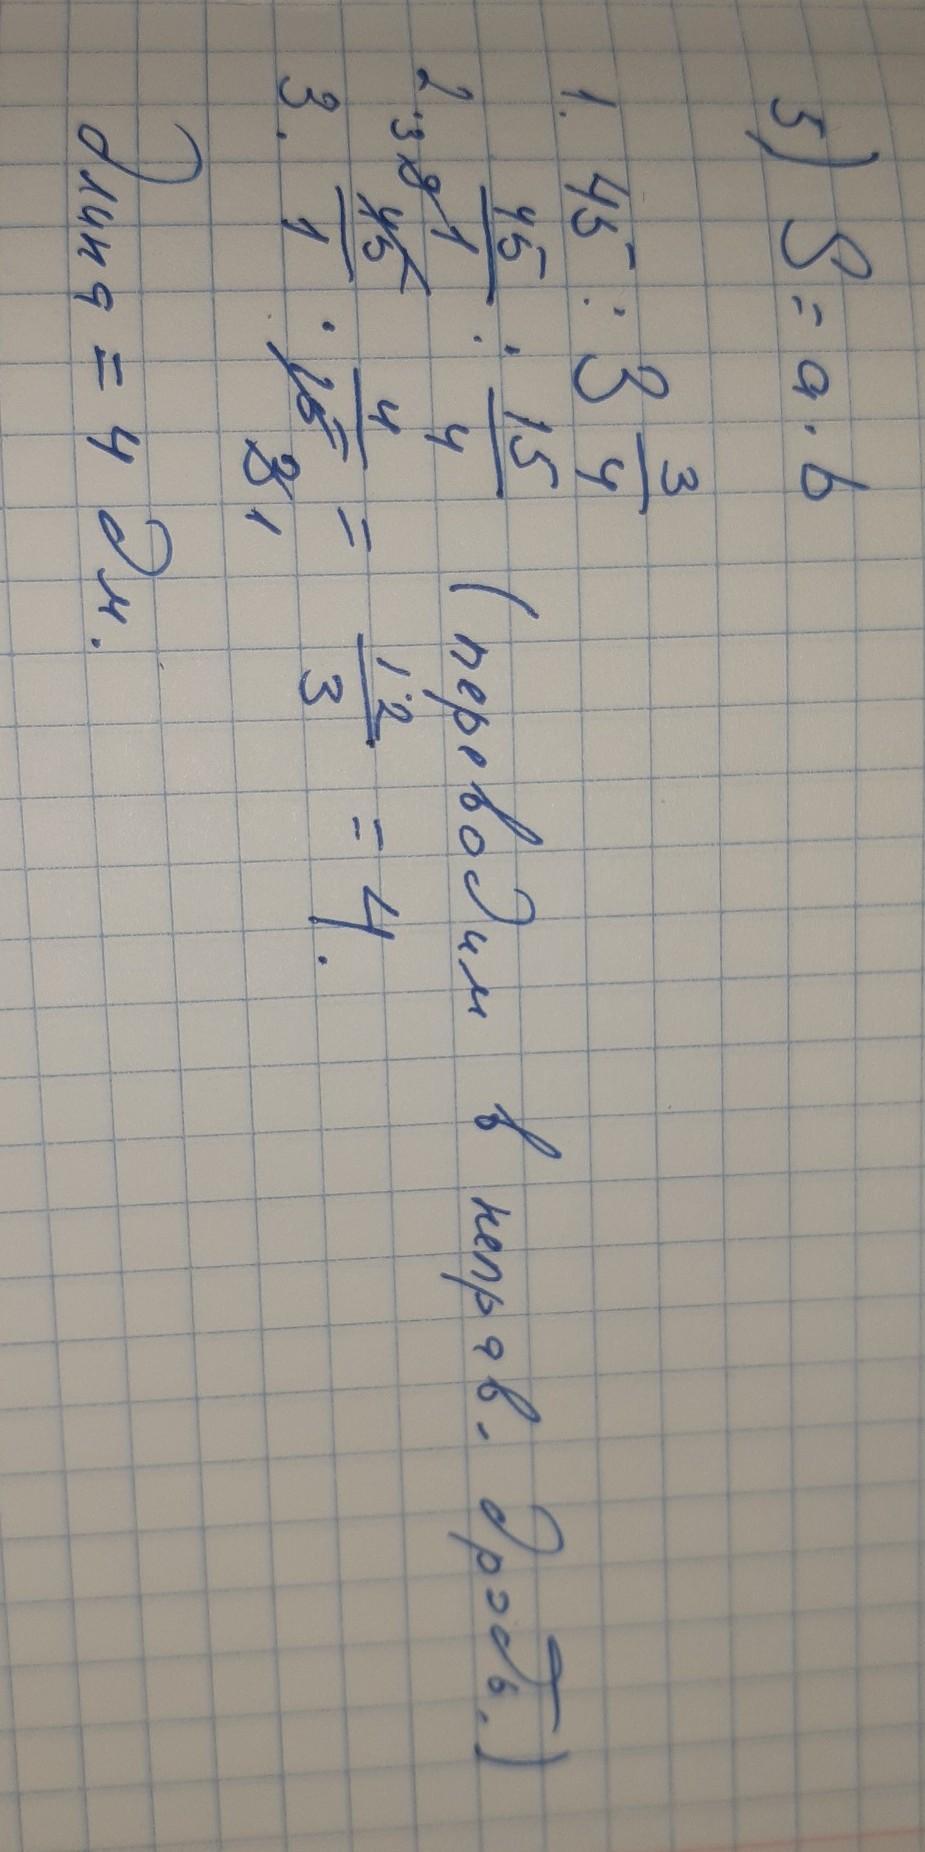 5) S = a · b
1. 45 : 3 3/4
2. 45/1 : 15/4 (переводим в неправ. дробь.)
3. 45/1 · 4/15 = 12/3 = 4.
Длина = 4 дм.